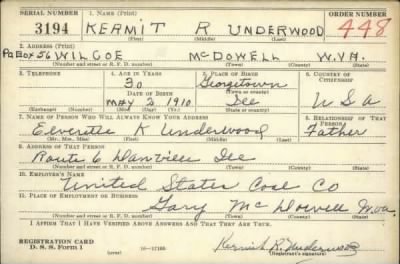 SERIAL NUMBER 1. NAME (Print) ORDER NUMBER
3194 KERMIT R UNDERWOOD 448
(First) (Middle) (Last)
2. ADDRESS (Print)
P.O. Box 56 WILCOE McDOWELL W.VA.
(Number and street or R. F. D. number) (Town) (County) (State)
3. TELEPHONE 4. AGE IN YEARS 5. PLACE OF BIRTH 6. COUNTRY OF CITIZENSHIP
30 Georgetown
DATE OF BIRTH (Town or county)
MAY 2 1910 Ill U S A
(Exchange) (Number) (Mo.) (Day) (Yr.) (State or country)
7. NAME OF PERSON WHO WILL ALWAYS KNOW YOUR ADDRESS 8. RELATIONSHIP OF THAT PERSON
Everette K Underwood Father
(Mr., Mrs., Miss) (First) (Middle) (Last)
9. ADDRESS OF THAT PERSON
Route 6 Danville Ill
(Number and street or R. F. D. number) (Town) (County) (State)
10. EMPLOYER'S NAME
United States Coal Co
11. PLACE OF EMPLOYMENT OR BUSINESS
Gary McDowell W.va.
(Number and street or R. F. D. number) (Town) (County) (State)
I AFFIRM THAT I HAVE VERIFIED ABOVE ANSWERS AND THAT THEY ARE TRUE.
REGISTRATION CARD
D. S. S. Form 1 (over) Kermit R. Underwood
(Registrant's signature)